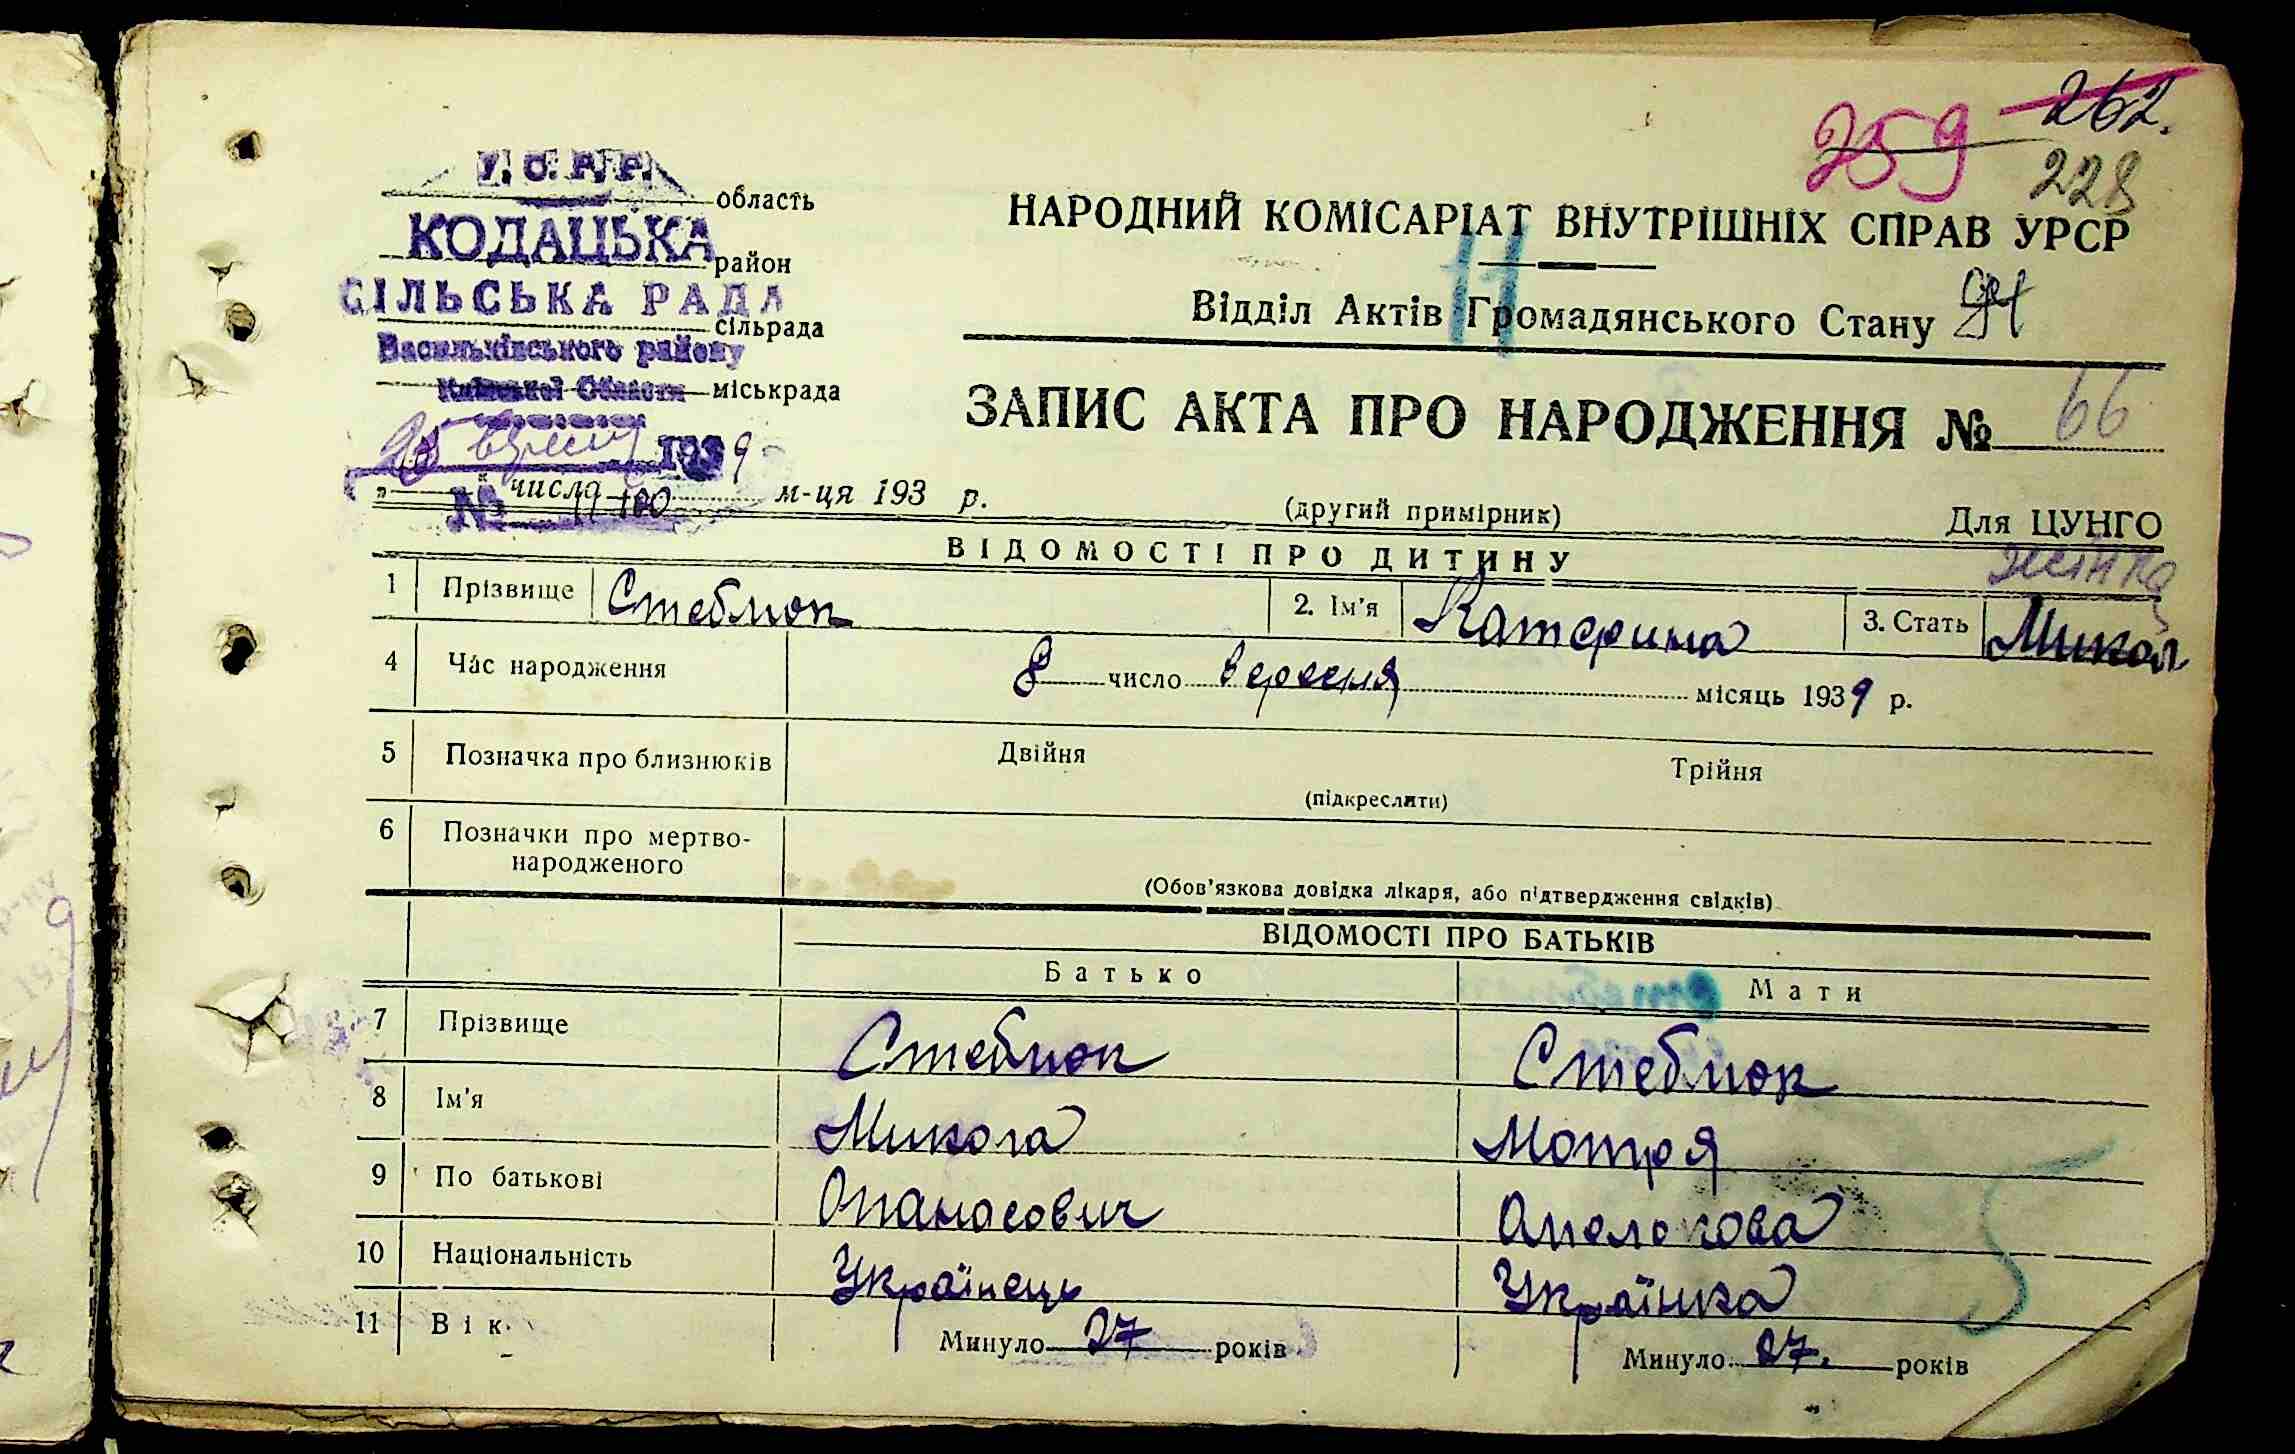 262.
259
228
У. С. Р. Р.
область
КОДАЦЬКА
район
СІЛЬСЬКА РАДА
сільрада
Васильківського району
Київської Области
міськрада
25 вересня 1939
" числа м-ця 193 р.
№ 11-100
НАРОДНИЙ КОМІСАРІАТ ВНУТРІШНІХ СПРАВ УРСР
Відділ Актів Громадянського Стану
ЗАПИС АКТА ПРО НАРОДЖЕННЯ № 66
(другий примірник) Для ЦУНГО
ВІДОМОСТІ ПРО ДИТИНУ
жінка
1 Прізвище Стеблюк 2. Ім'я Катерина 3. Стать Микол
4 Час народження 8 число вересня місяць 1939 р.
5 Позначка про близнюків Двійня Трійня
(підкреслити)
6 Позначки про мертво-
народженого
(Обов'язкова довідка лікаря, або підтвердження свідків)
ВІДОМОСТІ ПРО БАТЬКІВ
Батько Мати
7 Прізвище Стеблюк Стеблюк
8 Ім'я Микола Мотря
9 По батькові Опанасович
10 Національність Українець Українка
11 Вік Минуло 27 років Минуло 27. років